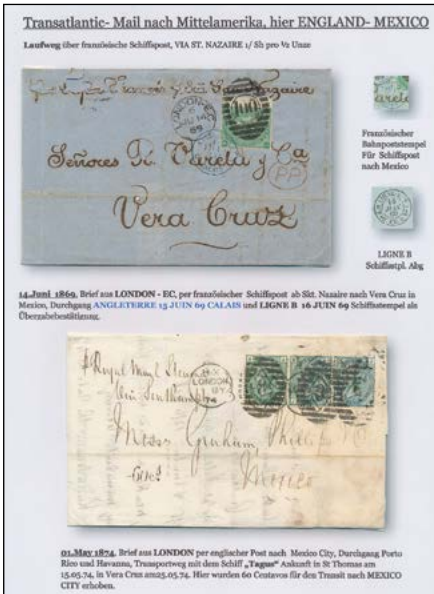 Transatlantic- Mail nach Mittelamerika, hier ENGLAND- MEXICO
Laufweg über französische Schiffspost, VIA ST. NAZAIRE 1/ Sh pro ½ Unze
LONDON-EC
6
JU 14
69
100
Señores
Varela y Ca
PP
Vera Cruz
Französischer
Bahnpoststempel
Für Schiffspost
nach Mexico
LIGNE B
Schiffsstpl. Abg
14.Juni 1869, Brief aus LONDON - EC, per französischer Schiffspost ab Skt. Nazaire nach Vera Cruz in
Mexico, Durchgang ANGLETERRE 15 JUIN 69 CALAIS und LIGNE B 16 JUIN 69 Schiffsstempel als
Überzabebestätigung.
LONDON
Royal Mail Steamer
via Southampton
Messrs Graham,
Mexico
01.May 1874, Brief aus LONDON per englischer Post nach Mexico City, Durchgang Porto
Rico und Havanna, Transportweg mit dem Schiff „Tagus“ Ankunft in St Thomas am
15.05.74, in Vera Cruz am25.05.74. Hier wurden 60 Centavos für den Transit nach MEXICO
CITY erhoben.